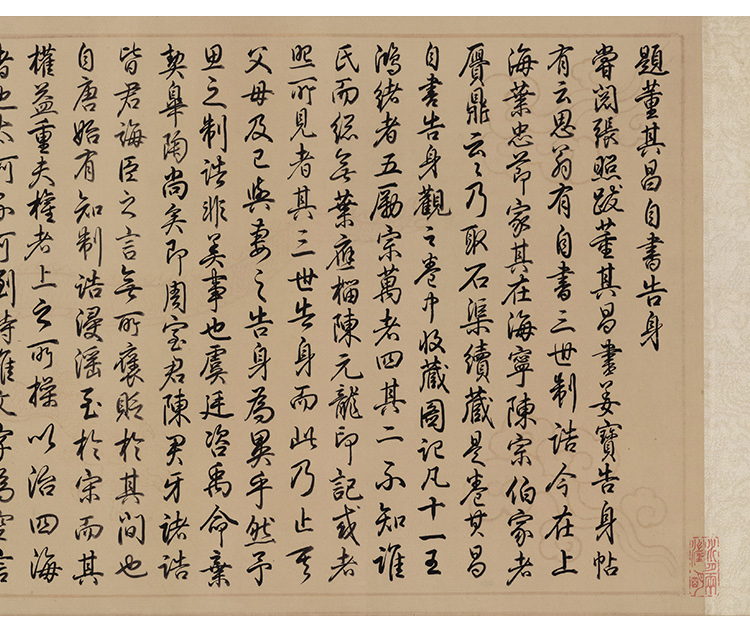 題董其昌自書告身
嘗閱張照跋董其昌書姜寶告身帖
有云思翁有自書三世制誥今在上
海葉忠節家其在海寧陳宗伯家者
贗鼎云云乃取石渠續藏是卷其昌
自書告身觀之卷中收藏圖記凡十一王
鴻緒者五勵宗萬者四其二不知誰
氏而總無葉應榴陳元龍印記或者
照所見者其三世告身而此乃止其
父母及己與妻之告身為異乎然予
思之制誥非美事也虞廷咨禹命棄
契皋陶尚矣即周室君陳君牙諸誥
皆君誨臣之言無所褒貶於其間也
自唐始有知制誥浸滛至於宋而其
權益重夫權者上之所操以治四海
者也太阿不可到持雖文字為空言